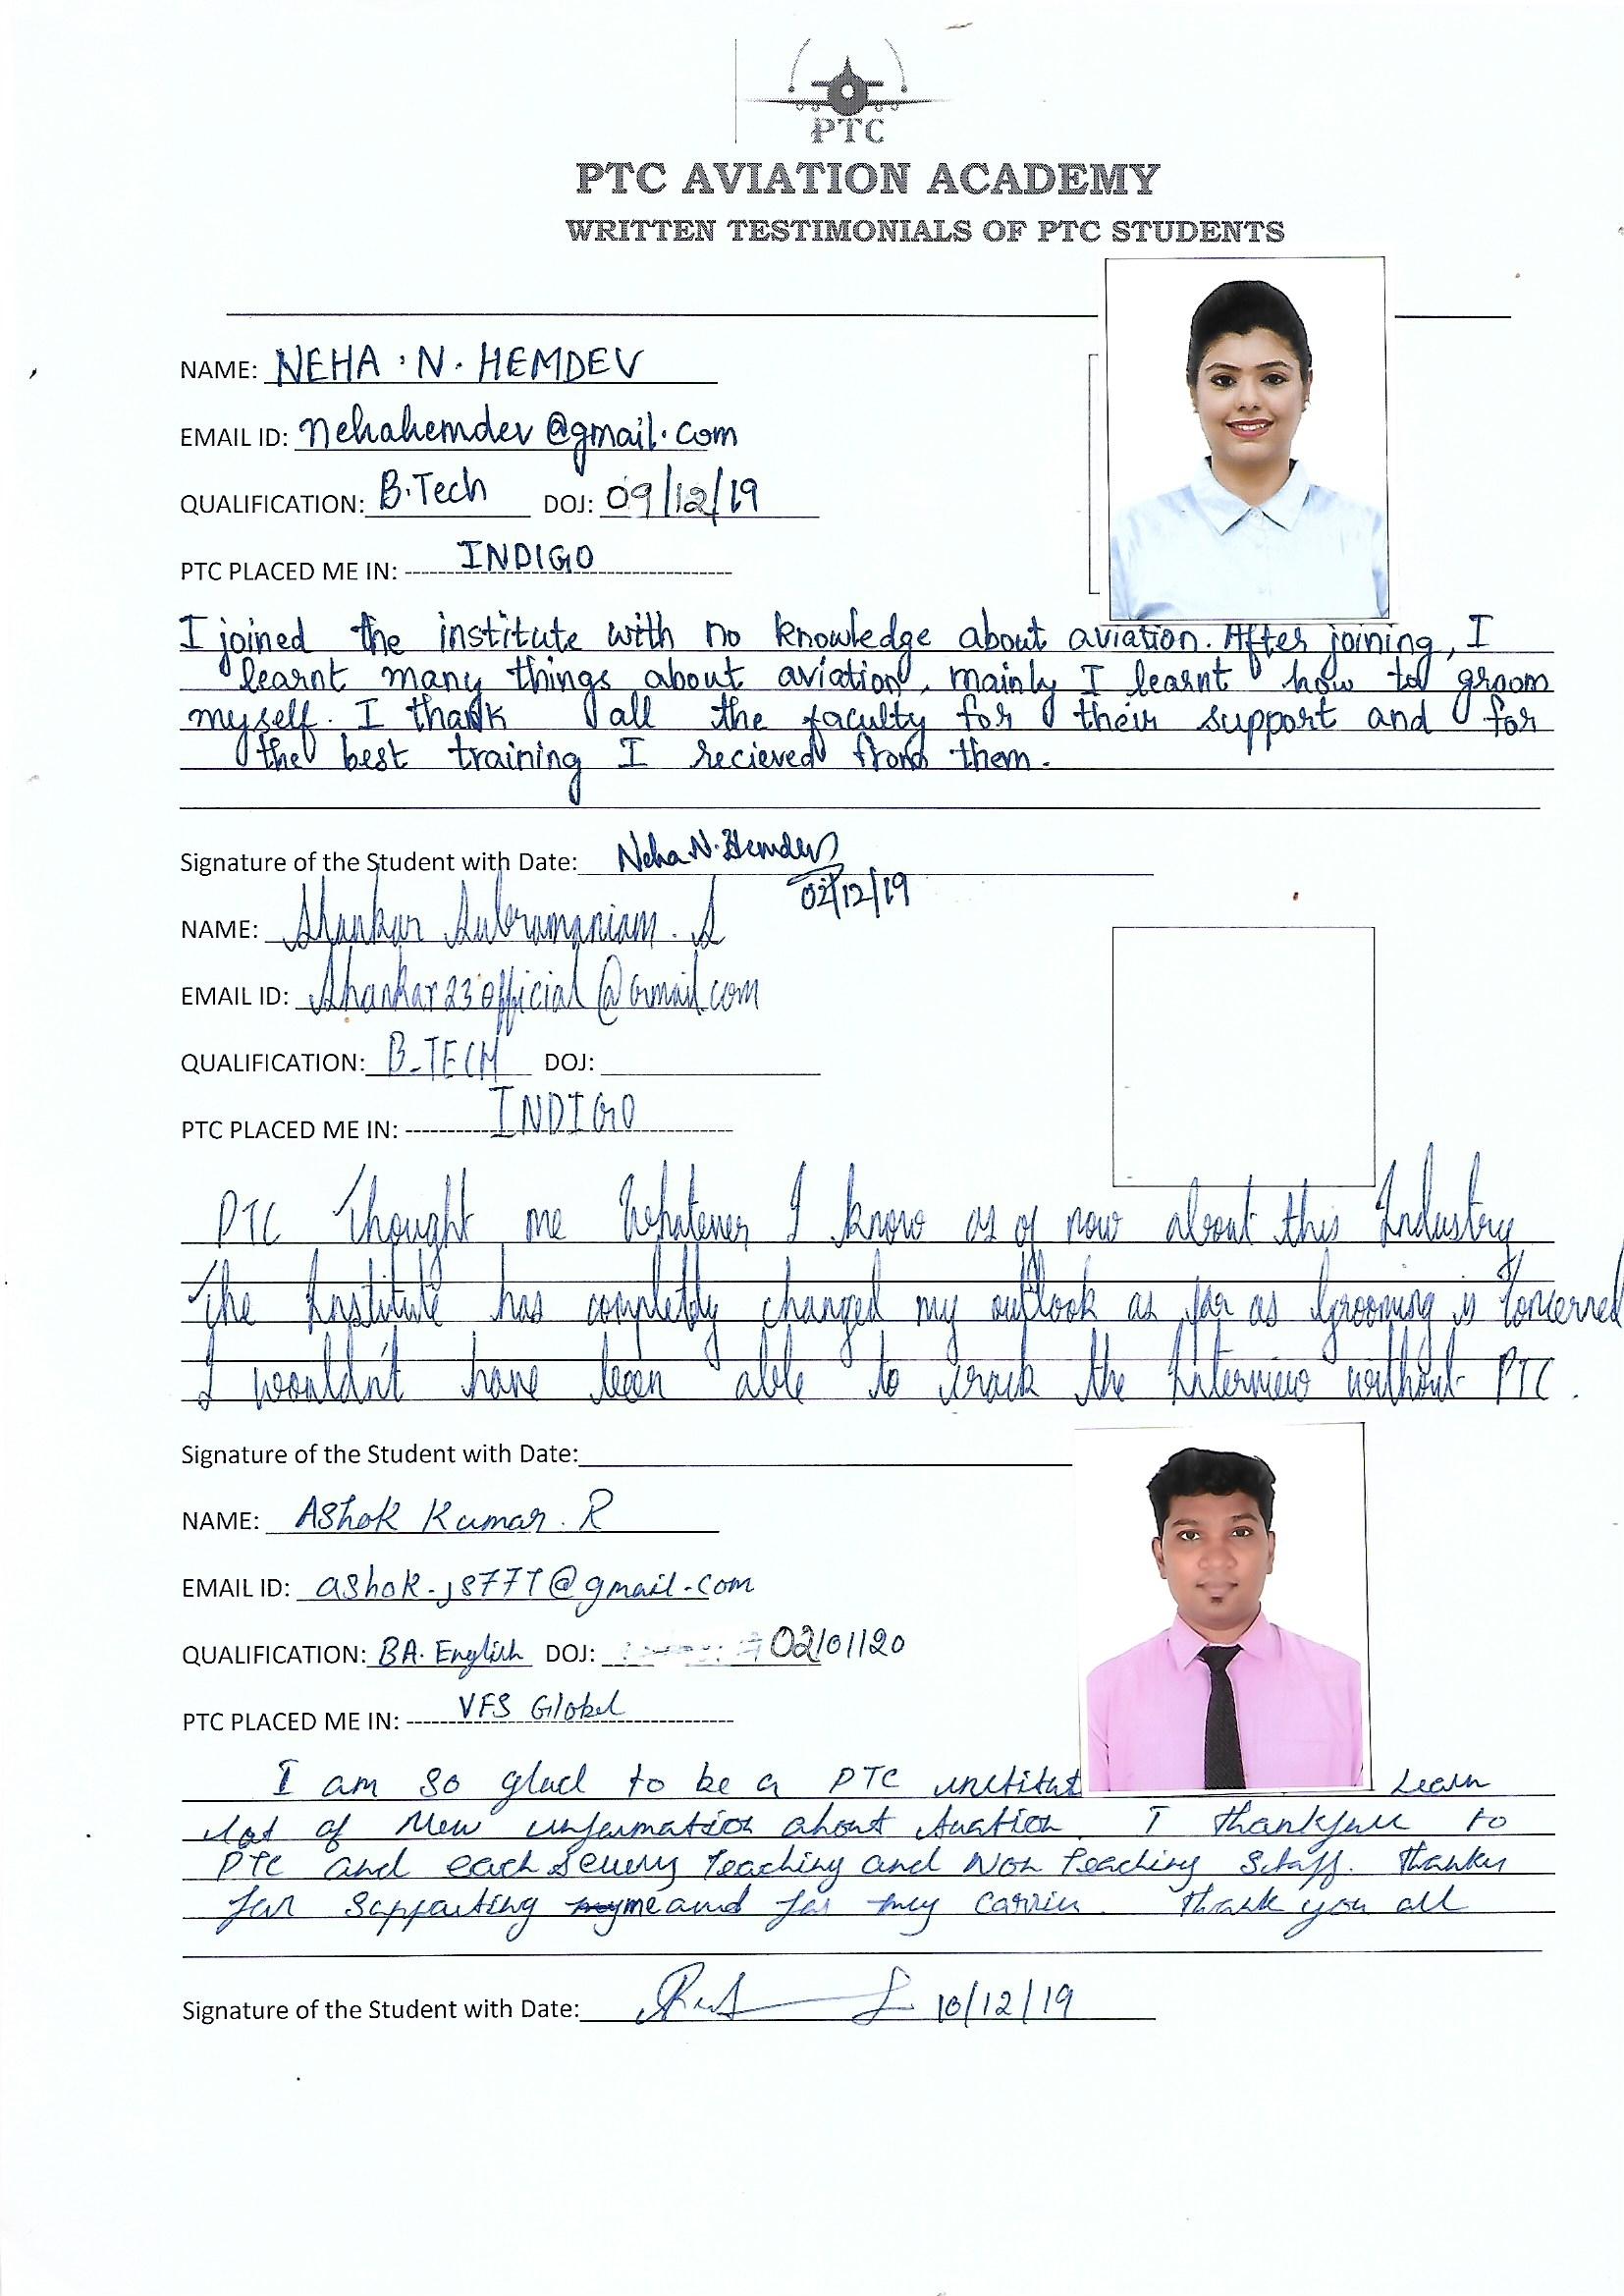 PTC
PTC AVIATION ACADEMY
WRITTEN TESTIMONIALS OF PTC STUDENTS
NAME: NEHA . N. HEMDEV
EMAIL ID: nehahemdev@gmail.com
QUALIFICATION: B.Tech DOJ: 09/12/19
PTC PLACED ME IN: INDIGO
I joined the institute with no knowledge about aviation. After joining, I
learnt many things about aviation, mainly I learnt how to groom
myself. I thank all the faculty for their support and for
the best training I recieved from them.
Signature of the Student with Date: Neha N. Hemdev
02/12/19
NAME: Shankar Subramaniam. S
EMAIL ID: Shankar23official@Gmail.com
QUALIFICATION: B-TECH DOJ:
PTC PLACED ME IN: INDIGO
PTC Thought me Whatever I know as of now about this Industry
The Institute has completly changed my outlook as far as Grooming is Concerned
I wouldn't have been able to crack the Interview without PTC.
Signature of the Student with Date:
NAME: Ashok Kumar. R
EMAIL ID: @gmail.com
QUALIFICATION: BA. English DOJ: 02/01/20
PTC PLACED ME IN: VFS Global
I am so glad to be a PTC Learn
lot of New information about I thankfull to
PTC and each Teaching and Non Teaching Staff. Thanks
for Supporting me and for my Thank you all
Signature of the Student with Date: 10/12/19